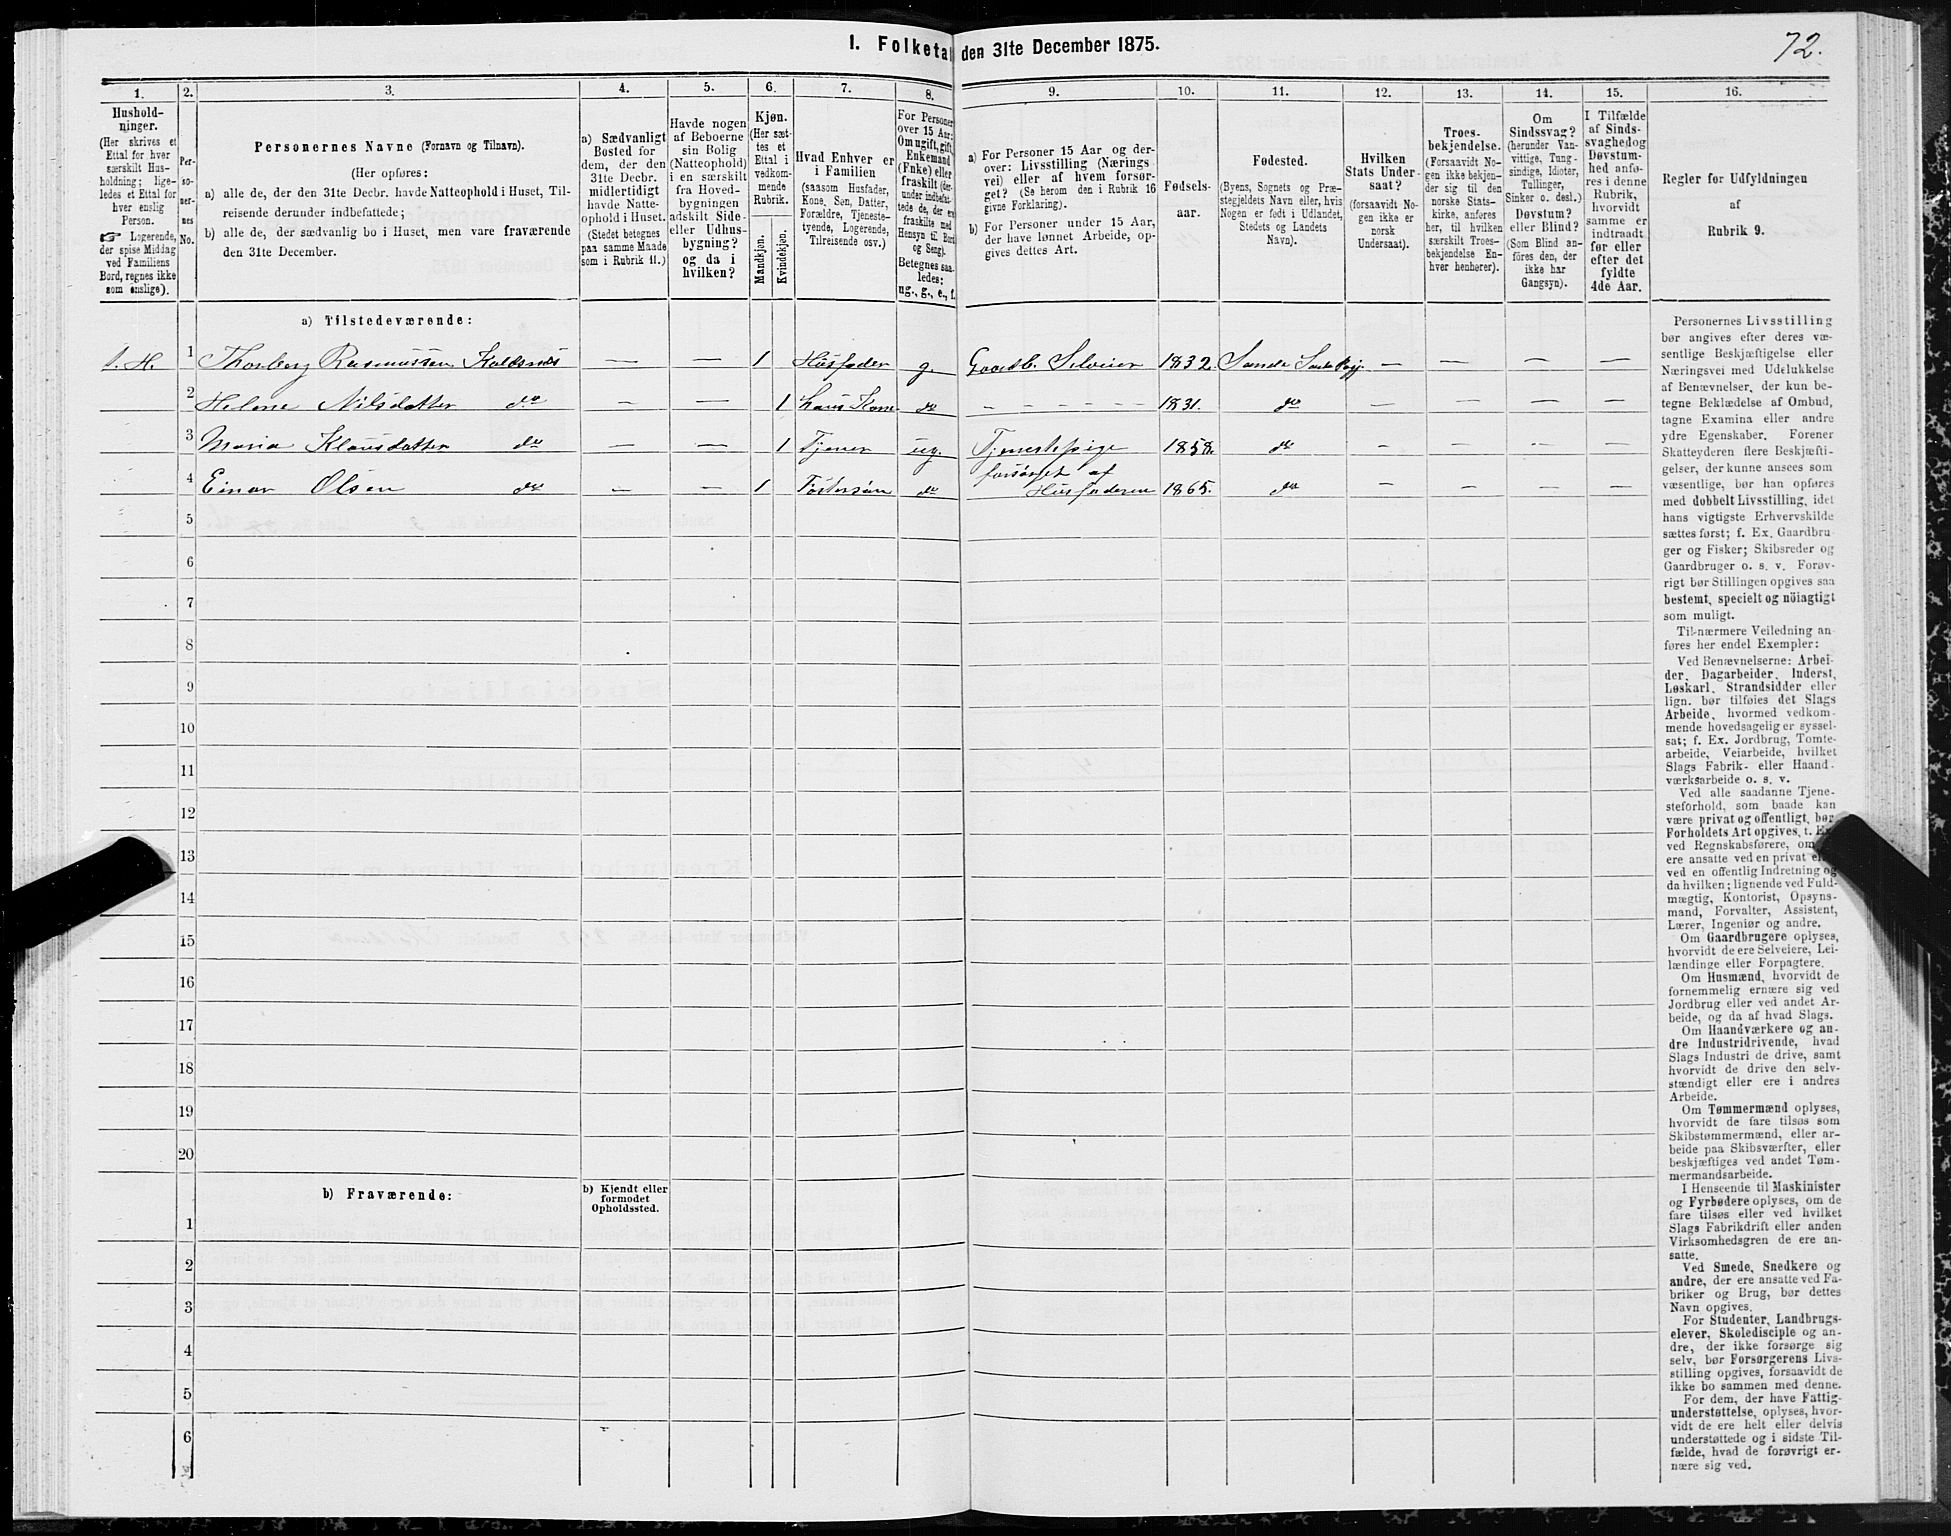 I. Folketal den 31te December 1875.
72.
1.
2.
3.
4.
5.
6.
7.
8.
9.
10.
11.
12.
13.
14.
15.
16.
Hushold-
ninger.
(Her skrives et
Ettal for hver
særskilt Hus-
holdning; lige-
ledes et Ettal for
hver enslig
Person.
☞ Logerende,
der spise Middag
ved Familiens
Bord, regnes ikke
som enslige).
Per-
so-
ner-
nes
No.
Personernes Navne (Fornavn og Tilnavn).
(Her opføres:
a) alle de, der den 31te Decbr. havde Natteophold i Huset, Til-
reisende derunder indbefattede;
b) alle de, der sædvanlig bo i Huset, men vare fraværende
den 31te December.
a) Sædvanligt
Bosted for
dem, der den
31te Decbr.
midlertidigt
havde Natte-
ophold i Huset.
(Stedet betegnes
paa samme Maade
som i Rubrik 11.)
Havde nogen
af Beboerne
sin Bolig
(Natteophold)
i en særskilt
fra Hoved-
bygningen
adskilt Side-
eller Udhus-
bygning?
og da i
hvilken?
Kjøn.
(Her sæt-
tes et
Ettal i
vedkom-
mende
Rubrik.
Mandkjøn.
Kvindekjøn.
Hvad Enhver er
i Familien
(saasom Husfader,
Kone, Søn, Datter,
Forældre, Tjeneste-
tyende, Logerende,
Tilreisende osv.)
For Personer
over 15 Aar:
Om ugift, gift,
Enkemand
(Enke) eller
fraskilt (der-
under indbefat-
tede de, der ere
fraskilte med
Hensyn til Bord
og Seng).
Betegnes saa-
ledes:
ug., g., e., f.
a) For Personer 15 Aar og der-
over: Livsstilling (Nærings
vei) eller af hvem forsør-
get? (Se herom den i Rubrik 16
givne Forklaring).
b) For Personer under 15 Aar,
der have lønnet Arbeide, op-
gives dettes Art.
Fødsels-
aar.
Fødested.
(Byens, Sognets og Præ-
stegjeldets Navn eller, hvis
Nogen er født i Udlandet,
Stedets og Landets
Navn).
Hvilken
Stats Under-
saat?
(forsaavidt No-
gen ikke er
norsk
Undersaat).
Troes-
bekjendelse.
(Forsaavidt No-
gen ikke bekjen-
der sig til den
norske Stats-
kirke, anføres
her, til hvilken
særskilt Troes-
bekjendelse En-
hver henhører).
Om
Sindssvag?
(herunder Van-
vittige, Tung-
sindige, Idioter,
Tullinger,
Sinker o. desl.)
Døvstum?
eller Blind?
(Som Blind an-
føres den, der
ikke har
Gangsyn).
I Tilfælde
af Sinds-
svaghed og
Døvstum-
hed anfø-
res i denne
Rubrik,
hvorvidt
samme er
indtraadt
før eller
efter det
fyldte
4de Aar.
Regler for Udfyldningen
af
Rubrik 9.
a) Tilstedeværende:
1. H. 1 Thorberg Rasmussen Koldsnes — — 1 Husfader g. Gaardb. Selveier 1832. Sande Sande Pgj. — — — —
2 Helene Nilsdatter do — — 1 hans Kone do - - - - - - 1831. do — — — —
3 Maria Klausdatter do — — 1 Tjener ug. Tjenestepige 1858. do — — — —
forsørget af
4 Einar Olsen do — — 1 Fostersøn do Husfaderen 1865. do — — — —
5
6
7
8
9
10
11
12
13
14
15
16
17
18
19
20
b) Fraværende:
b) Kjendt eller
formodet
Opholdssted.
1
2
3
4
5
6
Personernes Livsstilling
bør angives efter deres væ-
sentlige Beskjæftigelse eller
Næringsvei med Udelukkelse
af Benævnelser, der kun be-
tegne Beklædelse af Ombud,
tagne Examina eller andre
ydre Egenskaber. Forener
Skatteyderen flere Beskjæfti-
gelser, der kunne ansees som
væsentlige, bør han opføres
med dobbelt Livsstilling, idet
hans vigtigste Erhvervskilde
sættes først; f. Ex. Gaardbru-
ger og Fisker; Skibsreder og
Gaardbruger o. s. v. Forøv-
rigt bør Stillingen opgives saa
bestemt, specielt og nöiagtigt
som muligt.
Til nærmere Veiledning an-
føres her endel Exempler:
Ved Benævnelserne: Arbei-
der, Dagarbeider, Inderst,
Løskarl, Strandsidder eller
lign. bør tilføies det Slags
Arbeide, hvormed vedkom-
mende hovedsagelig er syssel-
sat; f. Ex. Jordbrug, Tomte-
arbeide, Veiarbeide, hvilket
Slags Fabrik- eller Haand-
værksarbeide o. s. v.
Ved alle saadanne Tjene-
steforhold, som baade kan
være privat og offentligt, bør
Forholdets Art opgives, t. Ex.
ved Regnskabsførere, om de
ere ansatte ved en privat eller
ved en offentlig Indretning og
da hvilken; lignende ved Fuld-
mægtig, Kontorist, Opsyns-
mand, Forvalter, Assistent,
Lærer, Ingeniør og andre.
Om Gaardbrugere oplyses,
hvorvidt de ere Selveiere, Lei-
lændinge eller Forpagtere.
Om Husmænd, hvorvidt de
fornemmelig ernære sig ved
Jordbrug eller ved andet Ar-
beide, og da af hvad Slags.
Om Haandværkere og an-
dre Industridrivende, hvad
Slags Industri de drive, samt
hvorvidt de drive den selv-
stændigt eller ere i andres
Arbeide.
Om Tømmermænd oplyses,
hvorvidt de fare tilsøs som
Skibstømmermænd, eller ar-
beide paa Skibsværfter, eller
beskjæftiges ved andet Tøm-
mermandsarbeide.
I Henseende til Maskinister
og Fyrbødere oplyses, om de
fare tilsøs eller ved hvilket
Slags Fabrikdrift eller anden
Virksomhedsgren de ere an-
satte.
Ved Smede, Snedkere og
andre, der ere ansatte ved Fa-
briker og Brug, bør dettes
Navn opgives.
For Studenter, Landbrugs-
elever, Skoledisciple og an-
dre, der ikke forsørge sig
selv, bør Forsørgerens Livs-
stilling opgives, forsaavidt de
ikke bo sammen med denne.
For dem, der have Fattig-
understøttelse, oplyses, hvor-
vidt de ere helt eller delvis
understøttede og i sidste Til-
fælde, hvad de forøvrigt er-
nære sig ved.